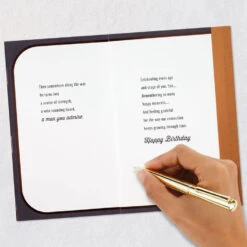 Time somewhere along the way
he turns into
a center of strength,
a wise sounding board,
a man you admire.
Celebrating every age
and stage of you, Son...
Remembering so many
happy moments...
And feeling grateful
for the way our connection
keeps growing through time.
Happy Birthday